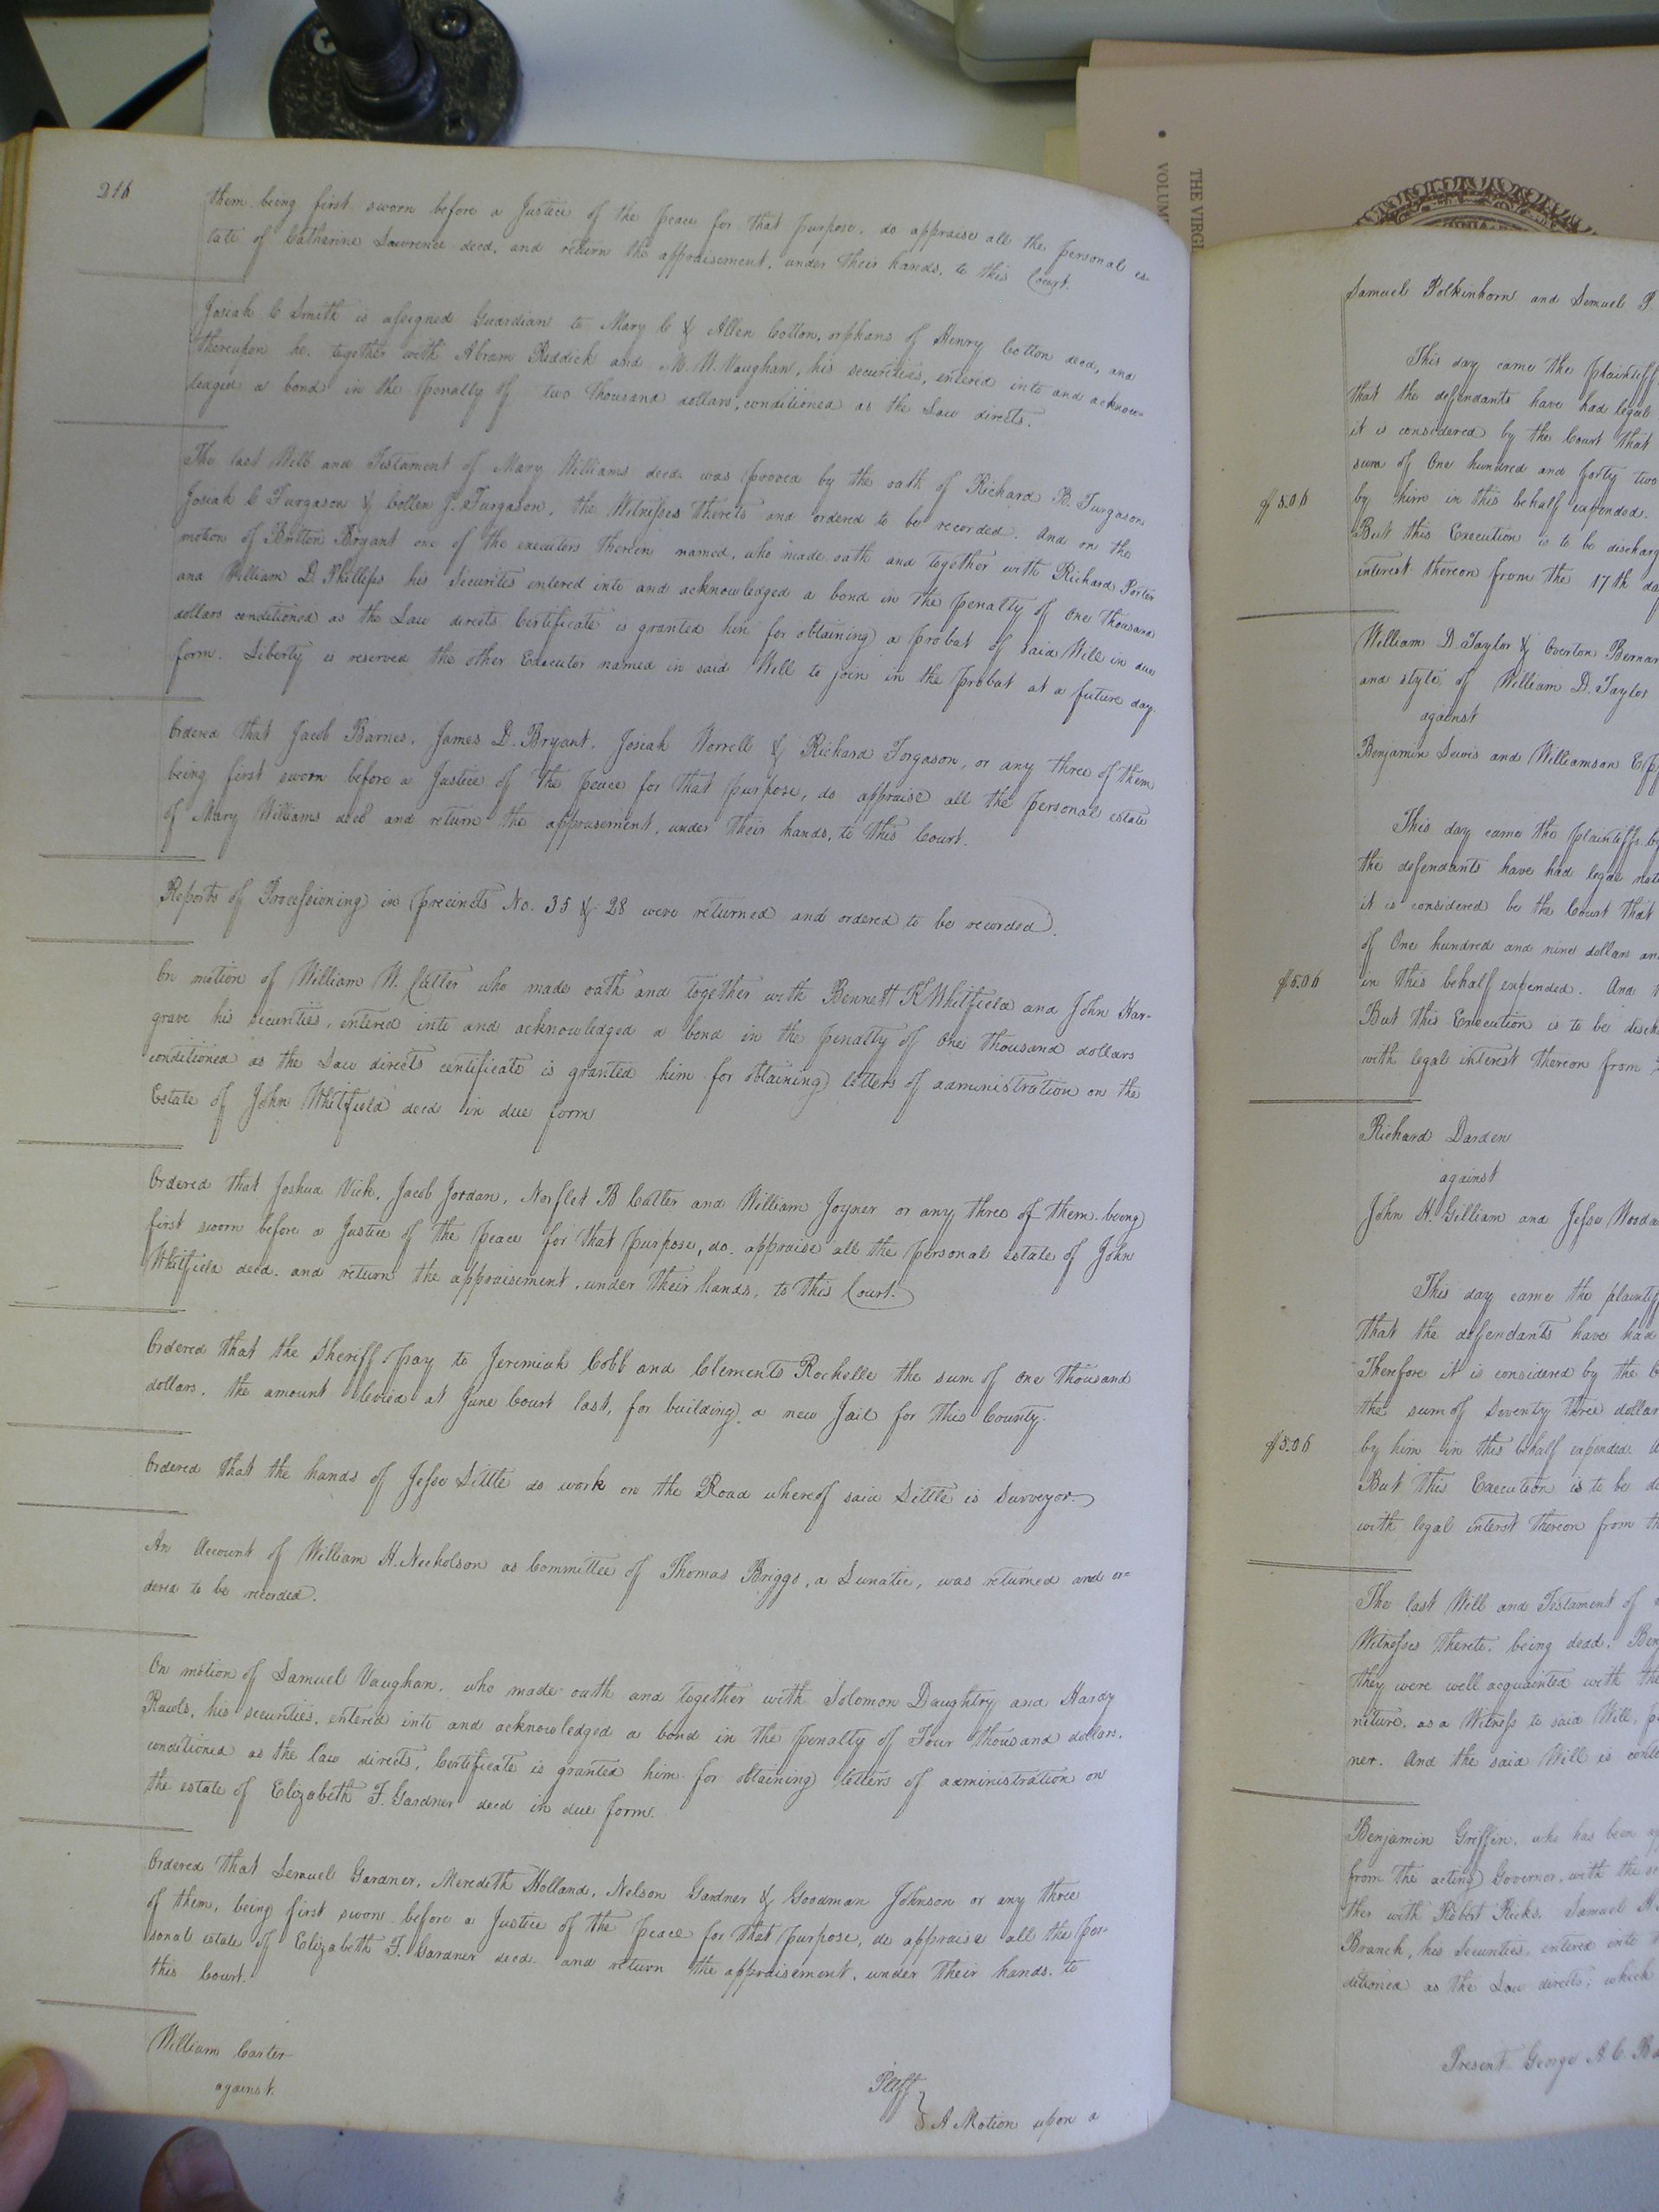 216
them being first sworn before a Justice of the peace for that purpose, do appraise all the personal es-
tate of Catharine Lawrence decd, and return the appraisement, under their hands, to this Court.
Josiah C Smith is assigned Guardian to Mary C & Allen Cotton, orphans of Henry Cotton decd, and
thereupon he, together with Abram Reddick and M. N. Vaughan, his securities, entered into and acknow-
ledged a bond in the penalty of two thousand dollars, conditioned as the Law directs.
The last Will and Testament of Mary Williams decd was prooved by the oath of Richard B. Turgason
Josiah C Turgason & Collen J. Turgason, the Witnesses thereto and ordered to be recorded. And on the
motion of Britten Bryant one of the executors therein named, who made oath and together with Richard Porter
and William D. Phillips his Securites entered into and acknowledged a bond in the penalty of One thousand
dollars conditioned as the Law directs Certificate is granted him for obtaining a probat of said Will in due
form. Liberty is reserved the other Executor named in said Will to join in the probat at a future day.
Ordered that Jacob Barnes, James D. Bryant, Josiah Worrell & Richard Forgason, or any three of them
being first sworn before a Justice of the peace for that purpose, do appraise all the personal estate
of Mary Williams decd and return the appraisement, under their hands, to this Court.
Reports of Processioning in precincts No. 35 & 28 were returned and ordered to be recorded.
On motion of William W. Cutler who made oath and together with Bennett K Whitfield and John Har-
grave his securities, entered into and acknowledged a bond in the penalty of One thousand dollars
conditioned as the Law directs certificate is granted him for obtaining letters of administration on the
Estate of John Whitfield decd in due form
Ordered that Joshua Vick, Jacob Jordan, Norflet B Cutler and William Joyner or any three of them being
first sworn before a Justice of the peace for that purpose, do appraise all the personal estate of John
Whitfield decd. and return the appraisement, under their hands, to this Court.
Ordered that the Sheriff pay to Jeremiah Cobb and Clements Rochelle the sum of one thousand
dollars, the amount levied at June Court last, for building a new Jail for this County.
Ordered that the hands of Jesse Little do work on the Road whereof said Little is Surveyor.
An Account of William H. Nicholson as Committee of Thomas Briggs, a Lunatic, was returned and or-
dered to be recorded.
On motion of Samuel Vaughan, who made oath and together with Solomon Daughtry and Hardy
Rawls, his securities, entered into and acknowledged a bond in the penalty of Four thousand dollars,
conditioned as the law directs, Certificate is granted him for obtaining letters of administration on
the estate of Elizabeth F. Gardner decd in due form.
Ordered that Lemuel Gardner, Meredeth Holland, Nelson Gardner & Goodman Johnson or any three
of them, being first sworn before a Justice of the peace for that purpose, do appraise all the per-
sonal estate of Elizabeth F. Gardner decd. and return the appraisement, under their hands, to
this Court.
William Carter
Plff
against
A Motion upon a
THE VIRGI
VOLUM
Samuel Polkinhorn and Lemuel P.
This day came the plaintiff
that the defendants have had legal
it is considered by the Court that
sum of One hundred and forty two
$5.06
by him in this behalf expended.
But this Execution is to be discharg
interest thereon from the 17th da
William D. Taylor & Overton Bernar
and style of William D. Taylor
against
Benjamin Lewis and Williamson
This day came the plaintiffs by
the defendants have had legal not
it is considered be the Court that
of One hundred and nine dollars an
$5.06
in this behalf expended. And
But this Execution is to be disch
with legal interest thereon from
Richard Darden
against
John H. Gilliam and Jesse Wooda
This day came the plaintif
that the defendants have had
Therefore it is considered by the C
the sum of Seventy three dollar
$5.06
by him in this behalf expended.
But this Execution is to be di
with legal interst thereon from th
The last Will and Testament of
Witnesses thereto, being dead, Ben
they were well acquainted with the
niture, as a Witness to said Will,
ner. And the said Will is
Benjamin Griffin, who has been
from the acting Governor, with the
ther with Robert Ricks, Samuel
Branch, his Securities, entered into
ditioned as the Law directs; which
Present George A. C. Ba